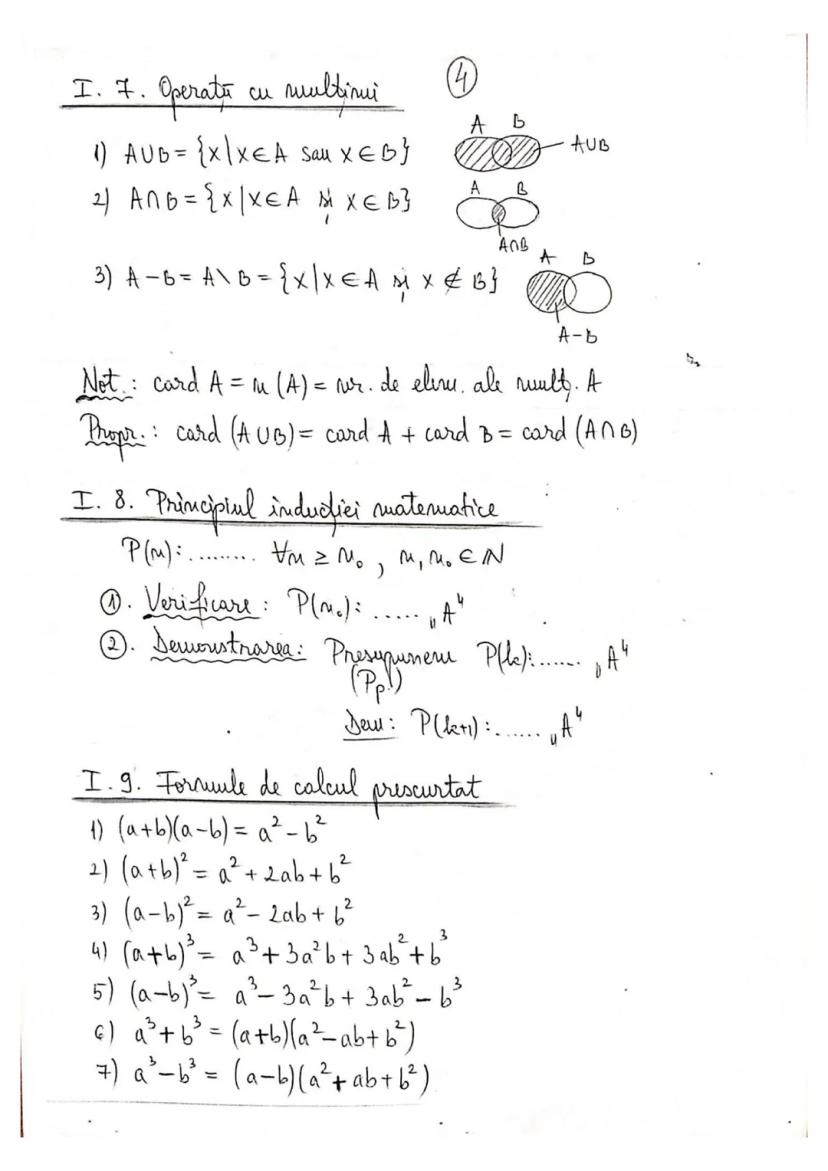 4
I. 7. Operații cu mulțimi
1) A∪B = {x|x∈A sau x∈B}
A B
A∪B
2) A∩B = {x|x∈A și x∈B}
A B
A∩B
3) A-B = A\B = {x|x∈A și x∉B}
A B
A-B
Not.: card A = n(A) = nr. de elem. ale mulț. A
Propr.: card (A∪B) = card A + card B = card (A∩B)
I. 8. Principiul inducției matematice
P(n): ......... ∀n ≥ n₀, n, n₀ ∈ ℕ
①. Verificare: P(n₀): ..... „A”
②. Demonstrarea: Presupunem P(k): ...... „A”
(Pp.)
Dem: P(k+1): ...... „A”
I. 9. Formule de calcul prescurtat
1) (a+b)(a-b) = a² - b²
2) (a+b)² = a² + 2ab + b²
3) (a-b)² = a² - 2ab + b²
4) (a+b)³ = a³ + 3a²b + 3ab² + b³
5) (a-b)³ = a³ - 3a²b + 3ab² - b³
6) a³ + b³ = (a+b)(a² - ab + b²)
7) a³ - b³ = (a-b)(a² + ab + b²)